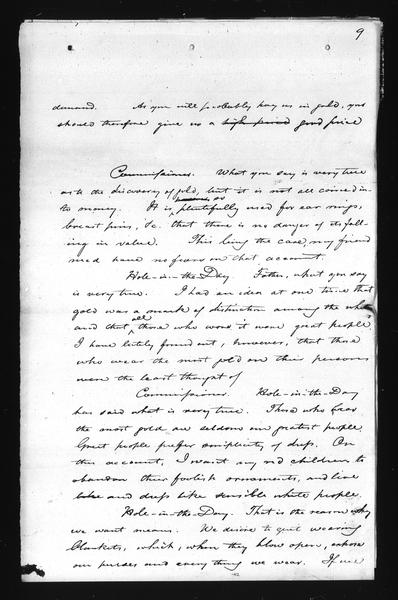 9
demand. As you will probably pay us in gold, you
should therefore give us a high priced good price
Commissioner. What you say is very true
as to the discovery of gold, but it is not all coined in-
to money. It is so plentifully used for ear rings,
breast pins, &c. that there is no danger of its fall-
ing in value. This being the case, my friend
need have no fears on that account.
Hole-in-the-Day. Father, what you say
is very true. I had an idea at one time that
gold was a mark of distinction among the whites
and that all those who wore it were great people.
I have lately found out, however, that those
who wear the most gold on their persons
were the least thought of
Commissioner. Hole-in-the-Day
has said what is very true. Those who wear
the most gold are seldom our greatest people.
Great people prefer simplicity of dress. On
this account, I want my red children to
abandon their foolish ornaments, and live
like and dress like sensible white people.
Hole-in-the-Day. That is the reason why
we want means. We desire to quit wearing
blankets, which, when they blow open, expose
our purses and everything we wear. If we